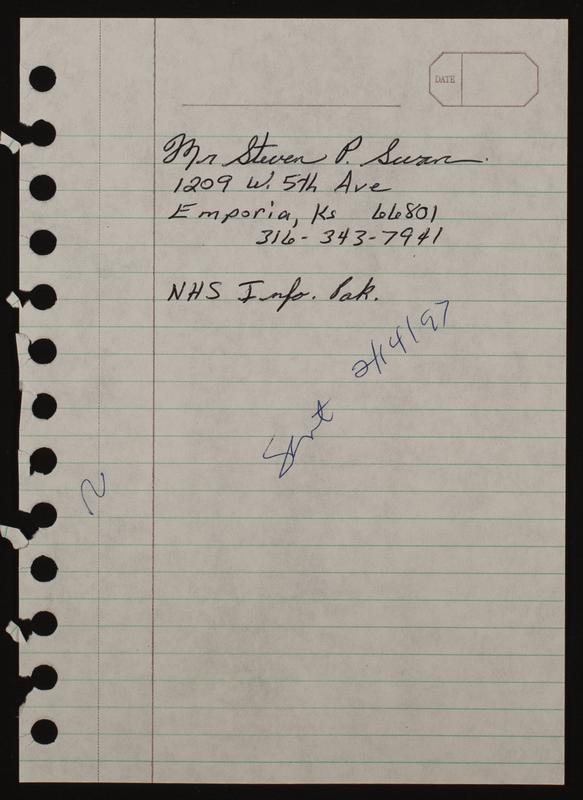 DATE
Mr Steven P. Swan
1209 W. 5th Ave
Emporia, Ks 66801
316-343-7941
NHS Info. Pak.
Sent 2/14/97